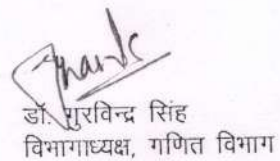 डॉ. गुरविन्द्र सिंह
विभागाध्यक्ष, गणित विभाग